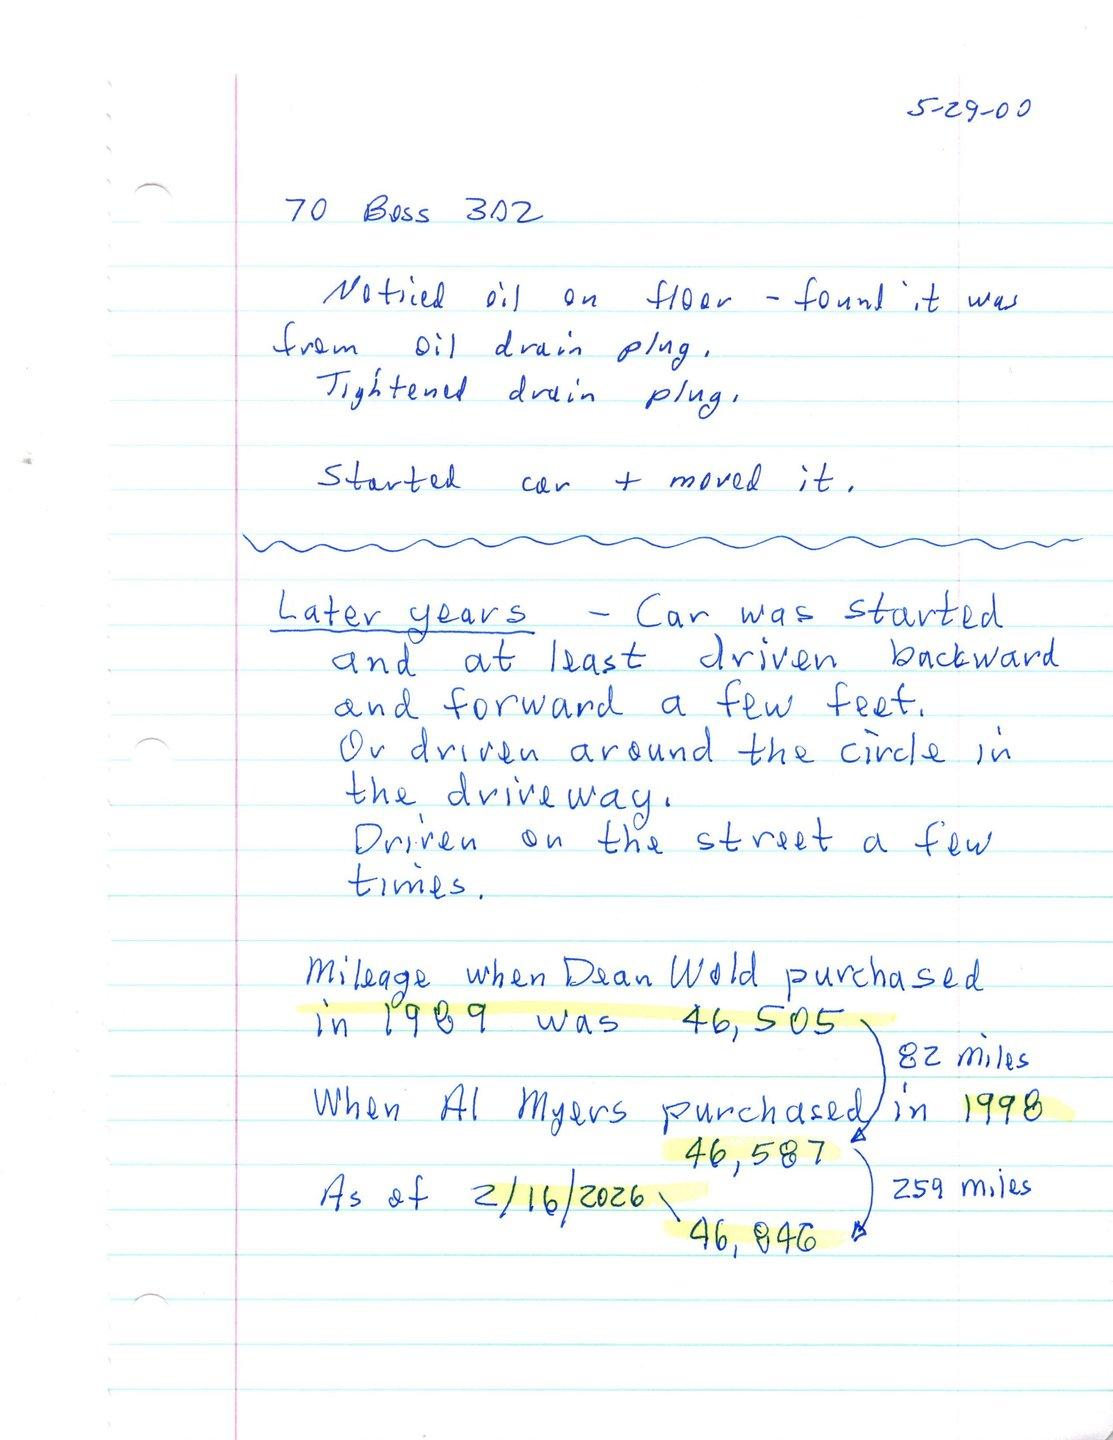 5-29-00
70 Boss 302
Noticed oil on floor - found it was
from oil drain plug.
Tightened drain plug.
Started car + moved it.
Later years - Car was started
and at least driven backward
and forward a few feet.
Or driven around the circle in
the driveway.
Driven on the street a few
times.
Mileage when Dean Wold purchased
in 1989 was 46,505
82 miles
When Al Myers purchased in 1998
46,587
As of 2/16/2026
259 miles
46,846